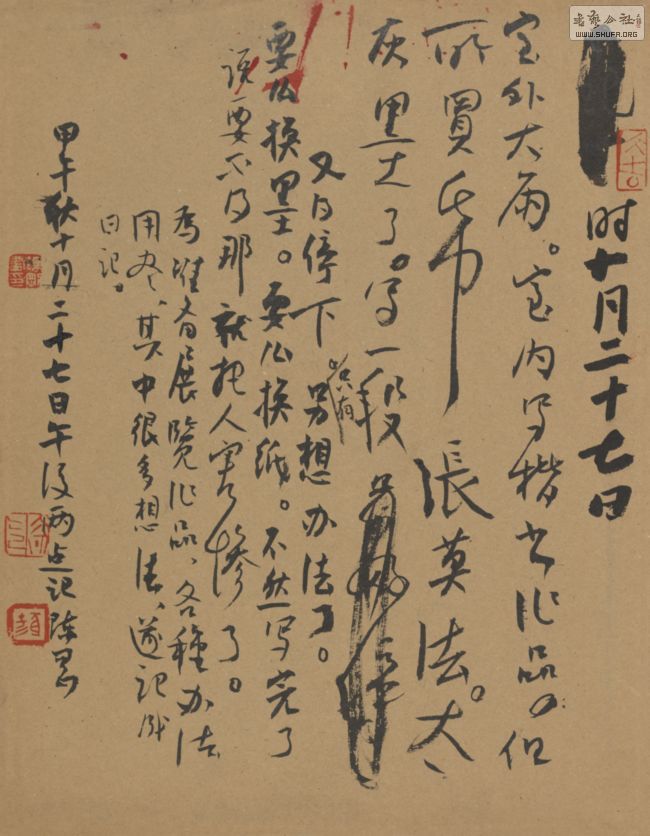 时十月二十七日
室外大雨。室内写楷书作品。但
所买纸 张莫法。太
灰黑土了。写一段
又得停下。只有另想办法了。
要么换墨。要么换纸。不然写完了
说要不得那就把人害惨了。
为准备展览作品、各种办法
用尽、其中很多想法、遂记成
日记。
甲午秋十月二十七日午后两点记陈
书艺公社
WWW.SHUFA.ORG